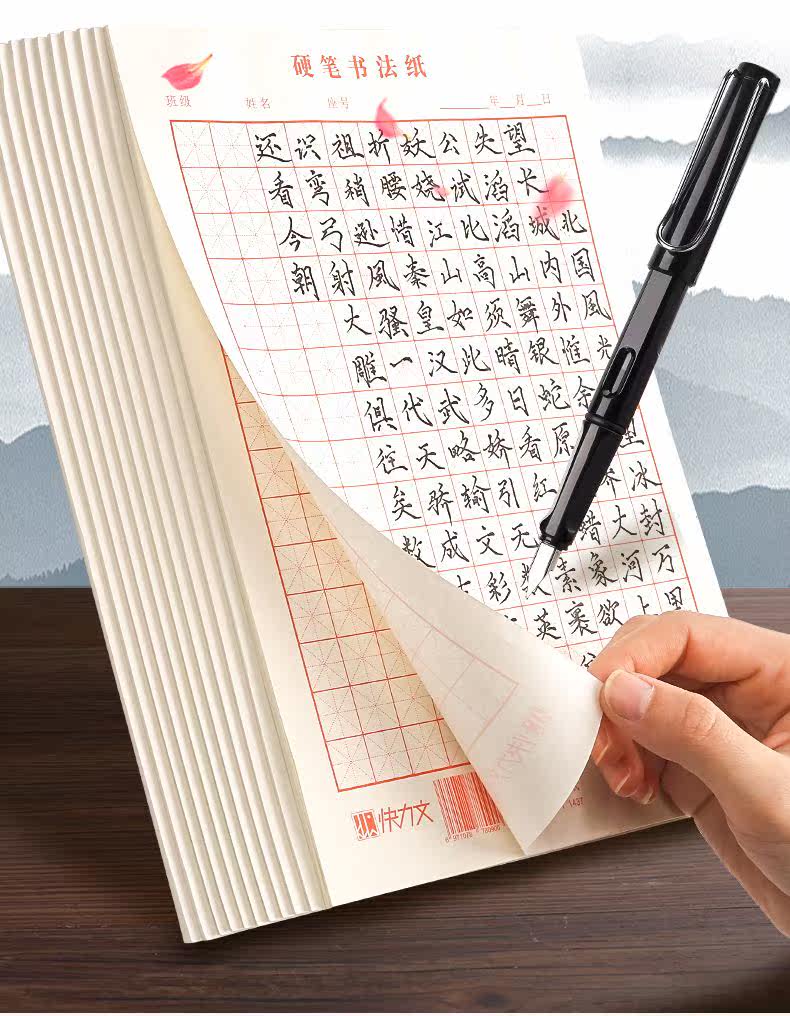 硬笔书法纸
班级 姓名 座号 年 月 日
北国風光 里冰封万里
望长城内外惟余 莽大河上
失滔滔山舞银蛇原 蜡象欲
公试比高须晴日看红 素裹
妖娆江山如此多娇引无数英
折腰惜秦皇汉武略输文彩
祖稍逊風骚一代天骄成
识弯弓射大雕俱往矣数
还看今朝
快力文